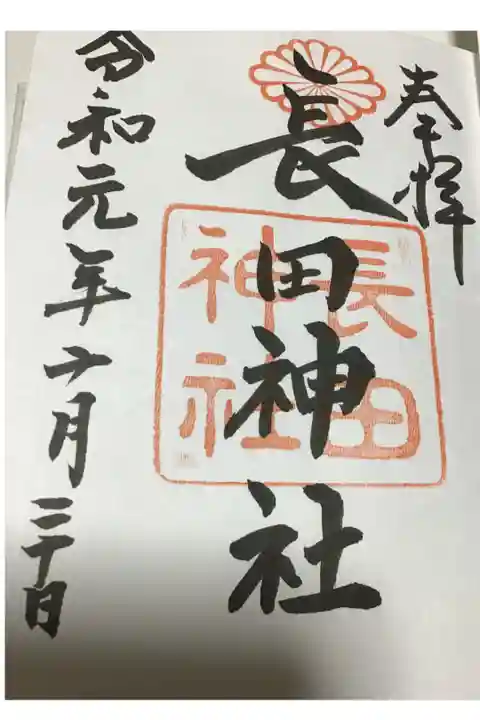 奉拝
長田神社
長田
神社
令和元年十一月三十日